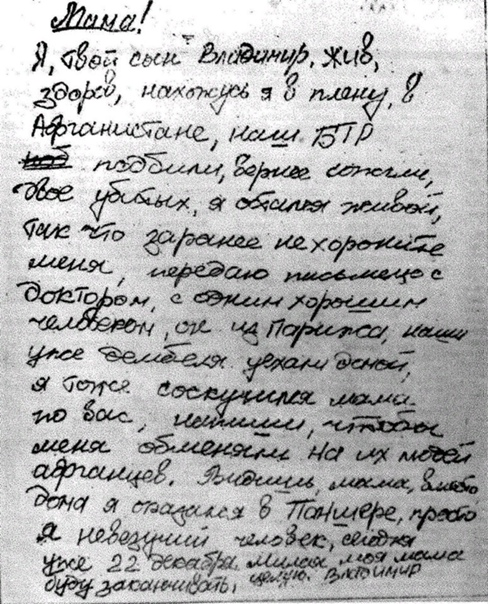 Мама!
Я, твой сын Владимир, жив,
здоров, нахожусь я в плену, в
Афганистане, наш БТР
под подбили, вернее сожгли,
двое убитых, я остался живой,
так что заранее не хороните
меня, передаю письмецо с
доктором, с одним хорошим
человеком, он из Парижа, наши
уже дембеля уехали домой,
я тоже соскучился мама
по вас, напиши, чтобы
меня обменяли на их людей
афганцев. Видишь, мама, вместо
дома я оказался в Паншере, просто
я невезучий человек, сегодня
уже 22 декабря. Милая моя мама
буду заканчивать, целую. Владимир